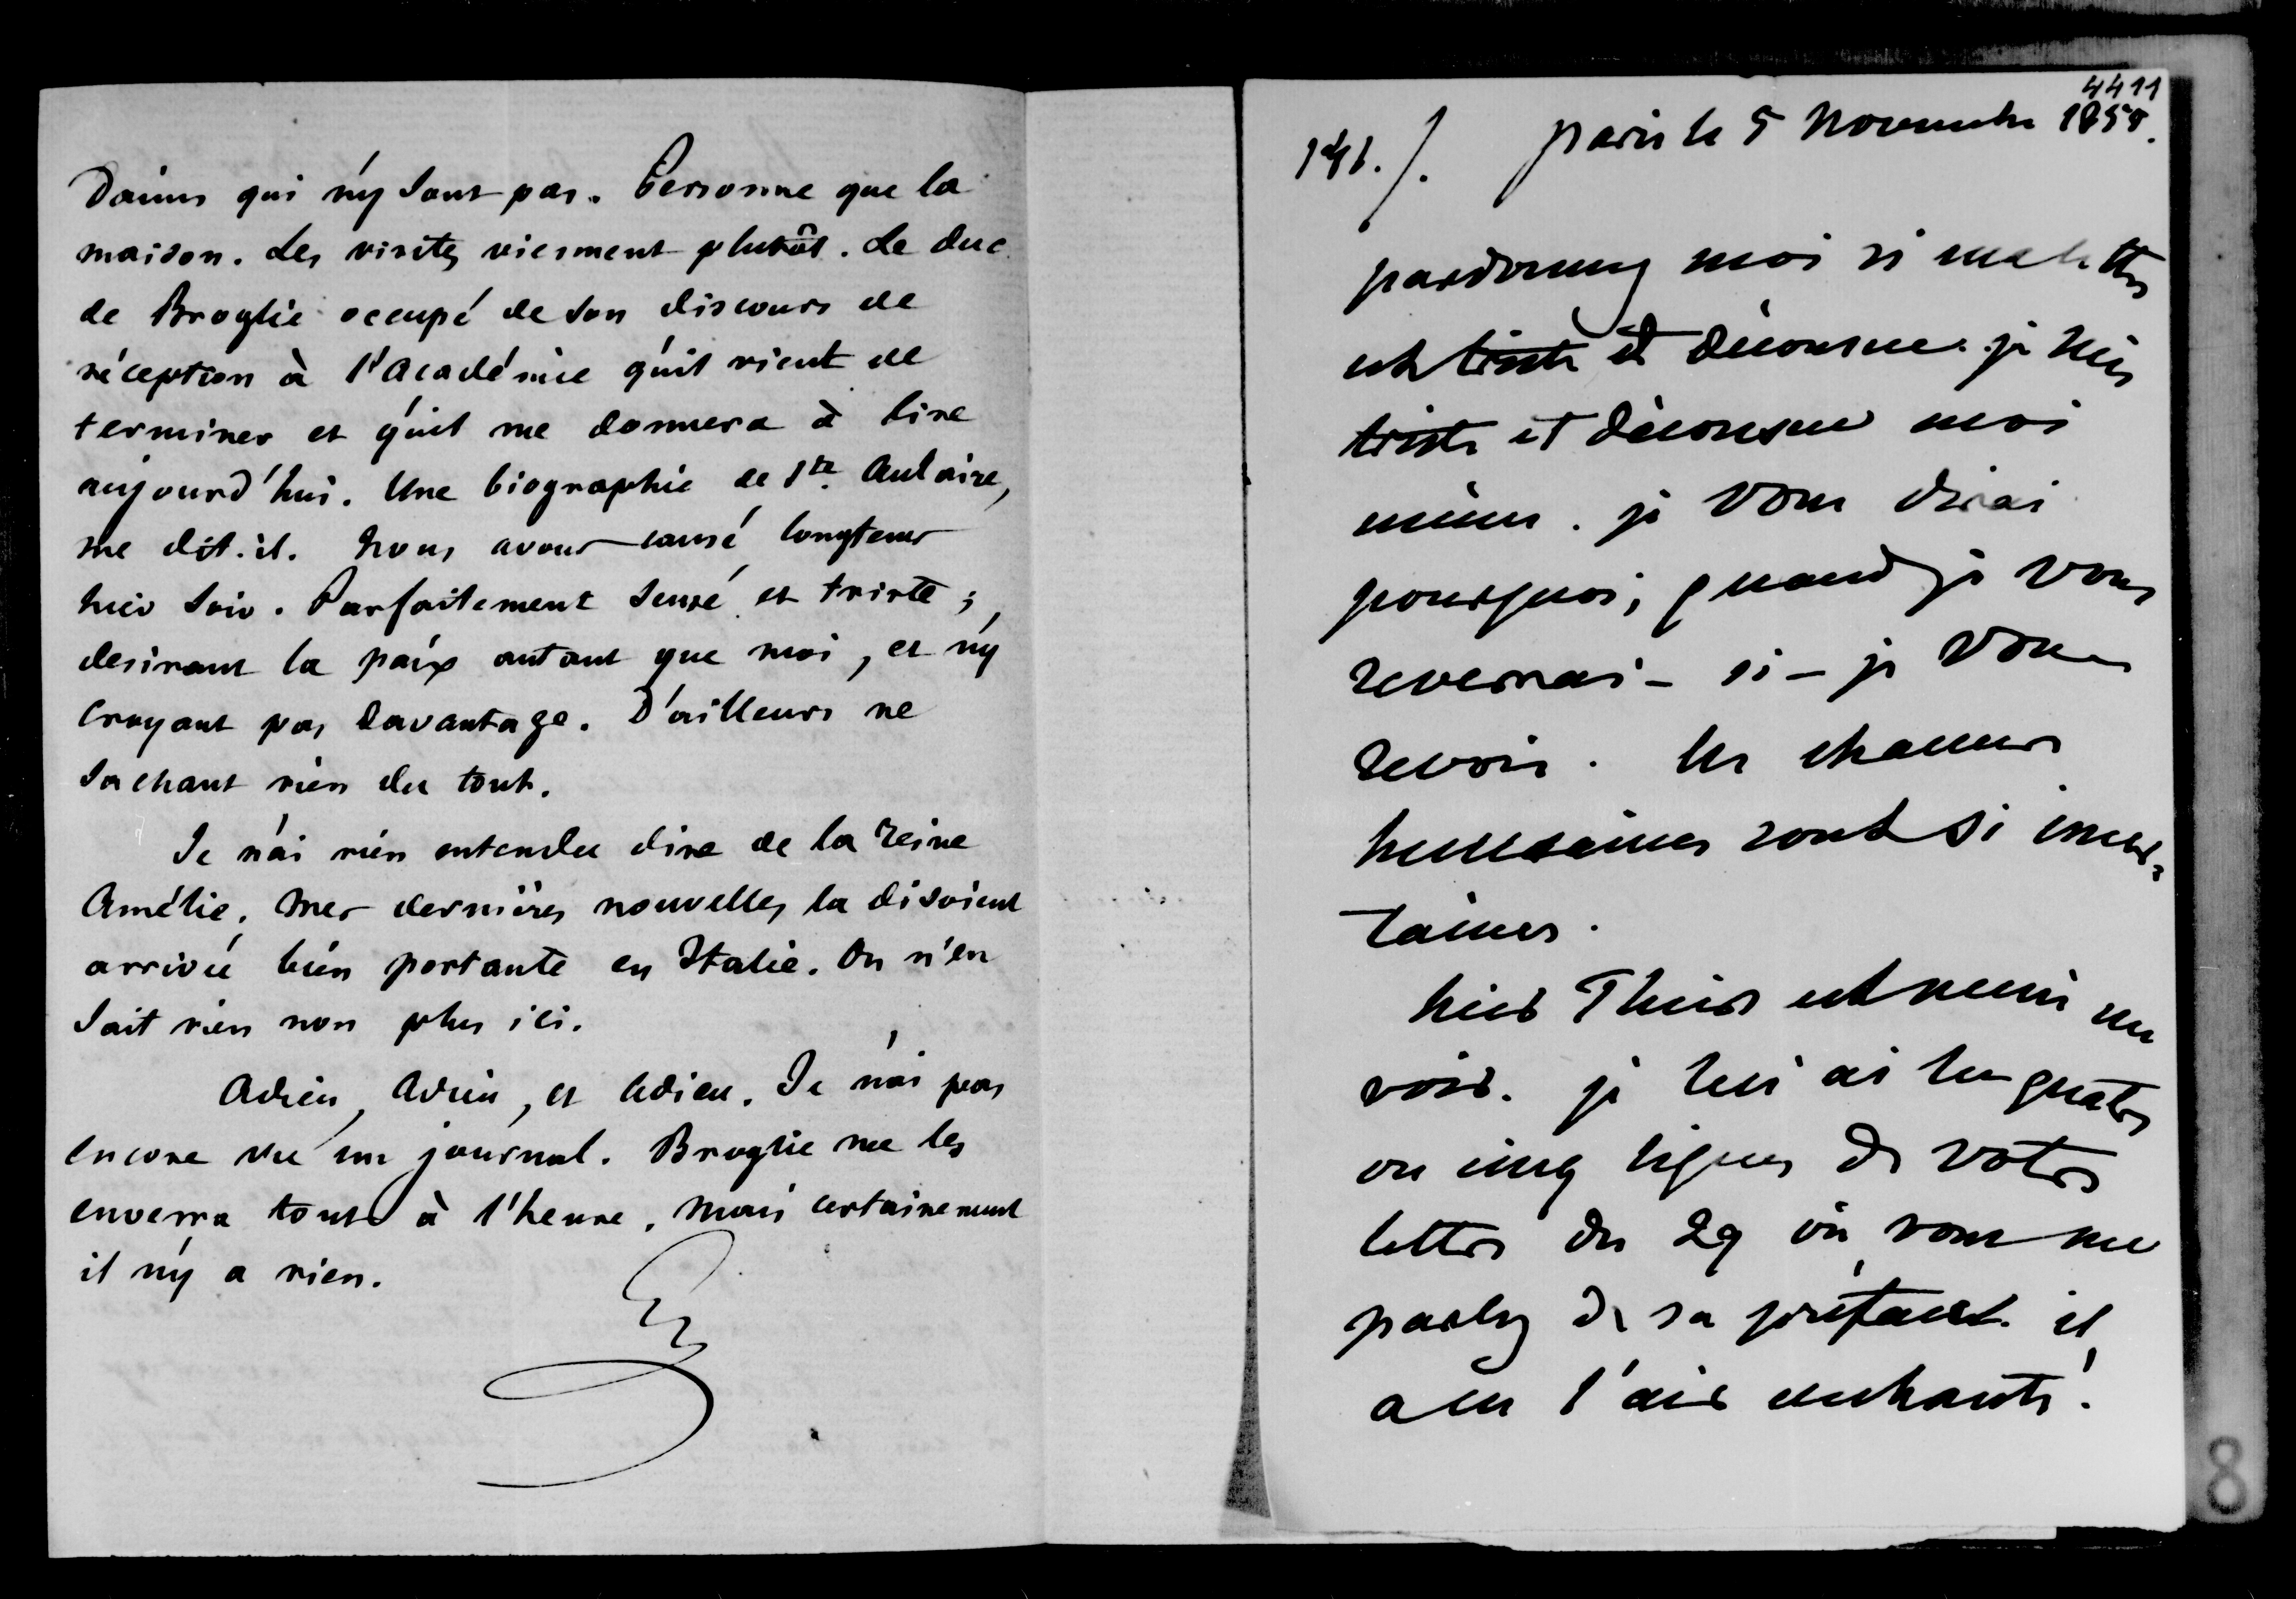 Daims qui n'y sont pas. Personne que la
maison. Les visites viennent plutôt. Le duc
de Broglie occupé de son discours de
réception à l'Académie qu'il vient de
terminer et qu'il me donnera à lire
aujourd'hui. Une biographie de Ste Aulaire,
me dit-il. Nous avons causé longtems
hier soir. Parfaitement sensé et triste ;
desirant la paix autant que moi, et n'y
croyant pas davantage. D'ailleurs ne
sachant rien du tout.
Je n'ai rien entendu dire de la reine
Amélie. Mes dernières nouvelles la disoient
arrivée bien portante en Italie. On n'en
sait rien non plus ici.
Adieu, Adieu, et Adieu. Je n'ai pas
encore vu un journal. Broglie me les
enverra tout à l'heure. Mais certainement
il n'y a rien.
4411
141./. Paris le 5 Novembre 1855.
pardonnez moi si ma lettre
est triste et décousue. je suis
triste et décousue moi
même. je vous dirai
pourquoi, quand je vous
reverrai - si - je vous
revois. les choses
humaines sont si incer-
taines.
hier Thiers est venu me
voir. je lui ai lu quatre
ou cinq lignes de votre
lettre du 29 où vous me
parlez de sa préface. il
a eu l'air enchanté.
8